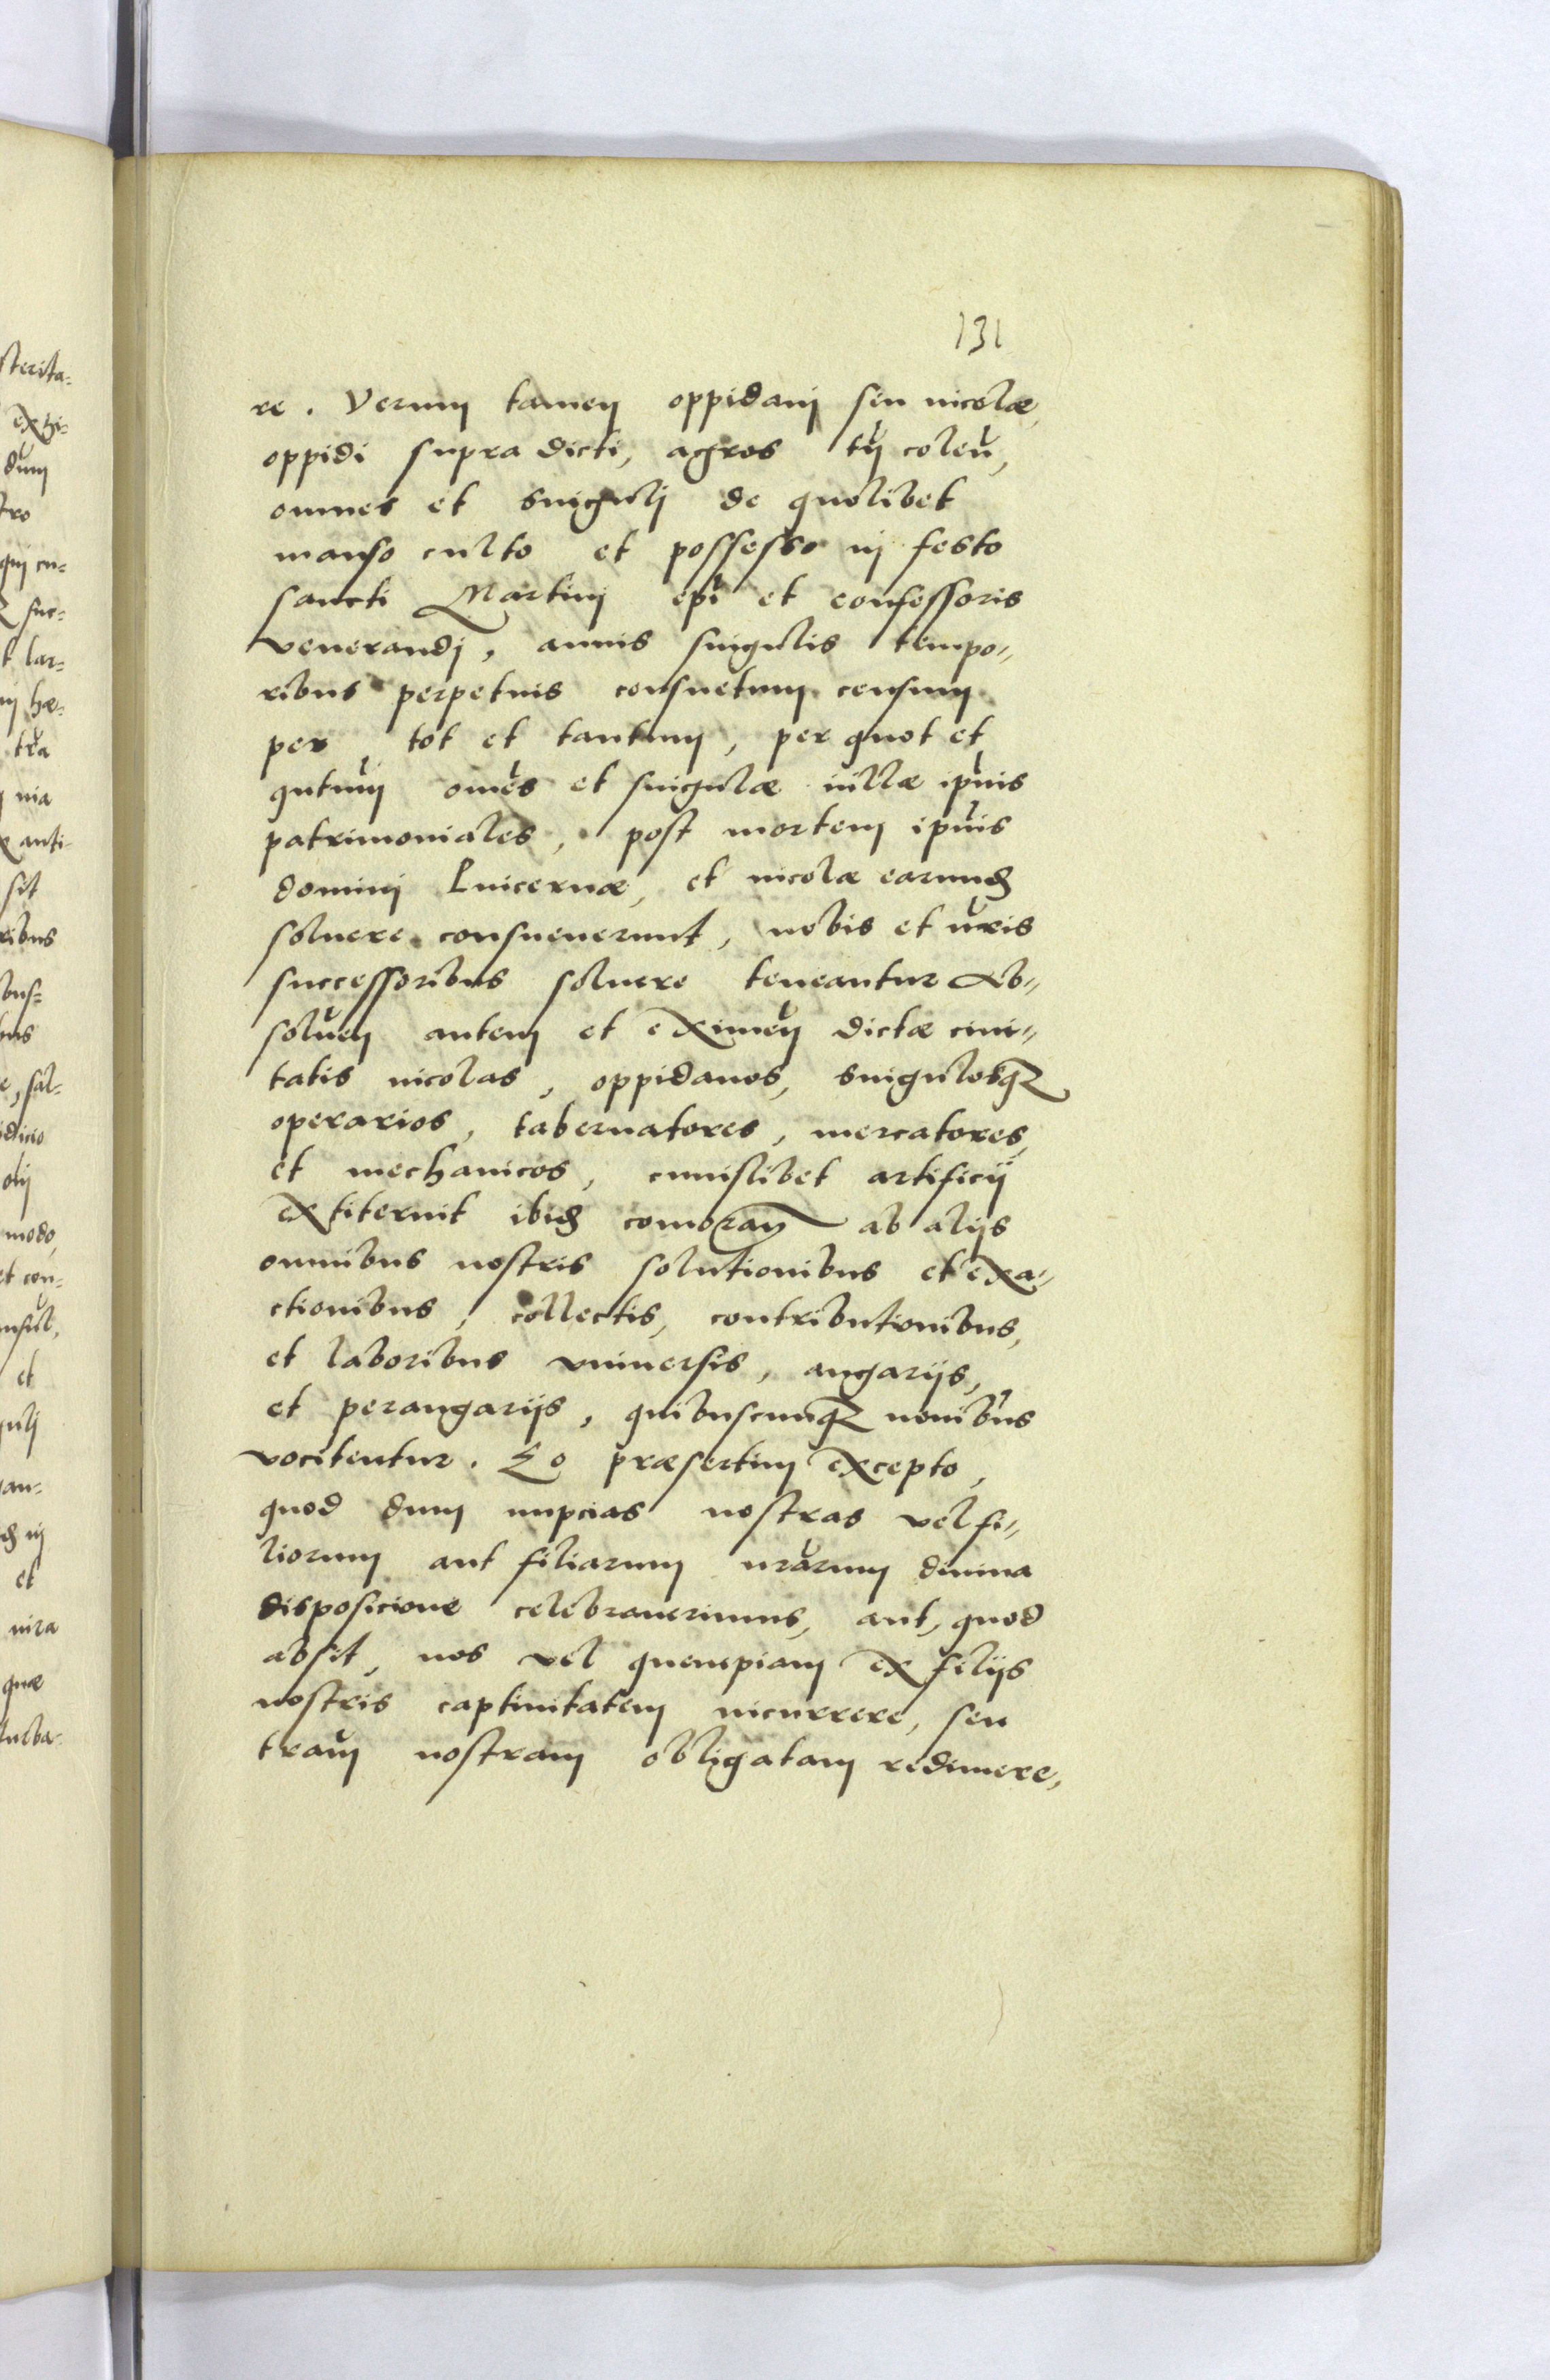 131
re. Verum tamen oppidani seu incolæ,
oppidi supra dicti, agros tn̄ colen̄,
omnes et singuli de quolibet
manso culto et possesso in festo
sancti Martini ep̄i et confessoris
venerandi, annis singulis tempo-
ribus perpetuis consuetum censum
per tot et tantum, per quot et
qntum om̄es et singulæ uillæ ip̄ius
patrimoniales, post mortem ip̄ius
domini Luicernæ, et incolæ earund
soluere consueuerunt, nobis et nr̄is
successoribus soluere teneantur Ab-
soluen̄ autem et eximen̄ dictæ ciui-
tatis incolas, oppidanos, singulosq
operarios, tabernatores, mercatores,
et mechanicos, cuiuslibet artificij
extiterint ibid comoran̄ ab alijs
omnibus nostris solutionibus et exa-
ctionibus, collectis, contributionibus,
et laboribus vniuersis, angarijs,
et perangarijs, quibuscumq noni̅bus
vocitentur. Eo præsertim excepto,
quod dum nupcias nostras vel fi-
liorum aut filiarum nr̄arum diuina
disposicione celebrauerimus, aut, quod
absit, nos vel quempiam ex filijs
nostris captiuitatem incurrere, seu
tr̄am nostram obligatam redimere,
sterita-
exti-
dum
tro
qui cu-
suc-
t lar-
in hæ-
tr̄a
uia
anti-
sit
ribus
bus-
bus
e, sal-
idicio
olij
modo,
et con-
nsul,
et
guli
an-
d in
et
nr̄a
quæ
turba-